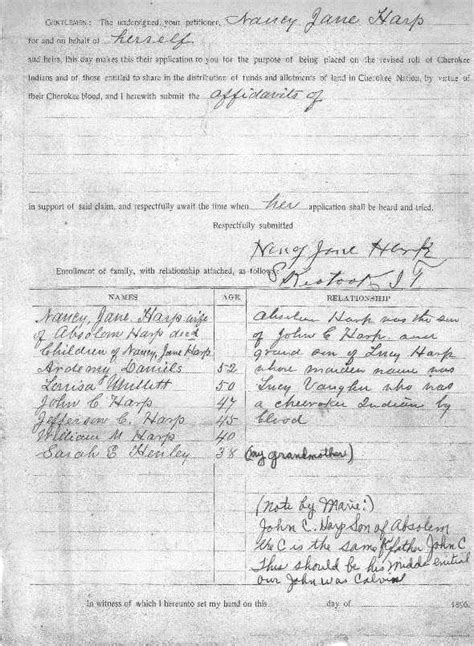 GENTLEMEN: The undersigned, your petitioner, Nancy Jane Harp
for and on behalf of herself
and heirs, this day makes this their application to you for the purpose of being placed on the revised roll of Cherokee
Indians and of those entitled to share in the distribution of funds and allotments of land in Cherokee Nation, by virtue of
their Cherokee blood, and I herewith submit the affidavits of
in support of said claim, and respectfully await the time when her application shall be heard and tried.
Respectfully submitted
Jane Harp
I T
Enrollment of family, with relationship attached, as follows:
NAMES AGE RELATIONSHIP
Nancy, Jane, Harp wife
of Absolem Harp decd
Children of Nancy Jane Harp
Ardemy Daniels 52
Louisa Mullett 50
John C Harp 47
Jefferson C. Harp 45
William M Harp 40
Sarah E Henley 38
Absolem Harp was the son
of John C Harp and
grand son of Lucy Harp
whose maiden name was
Lucy Vaughn who was
a cherokee Indian by
blood
(my grandmother)
(Note by Marie:)
John C. Harp Son of Absolem
the C is the same for father John C
This should be his middle initial
our John was Calvin
In witness of which I hereunto set my hand on this day of 1896.